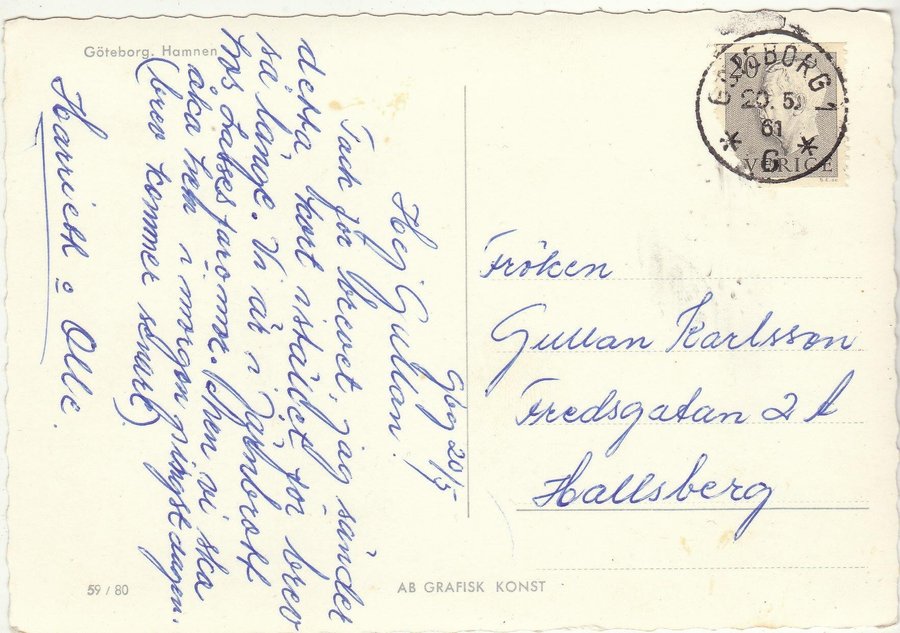 Göteborg. Hamnen
Gbg 20/5
Hej Gullan!
Tack för brevet, jag sänder
detta kort istället för brev
så länge. Vi är i Järnbrott
hos Lasses faromor. Men vi ska
åka hem i morgon pingstdagen.
(brev kommer senare).
Harriett o Olle.
GÖTEBORG 1
20. 5.
61
* 6 *
SVERIGE
Fröken
Gullan Karlsson
Fredsgatan 2 A
Hallsberg
59 / 80
AB GRAFISK KONST